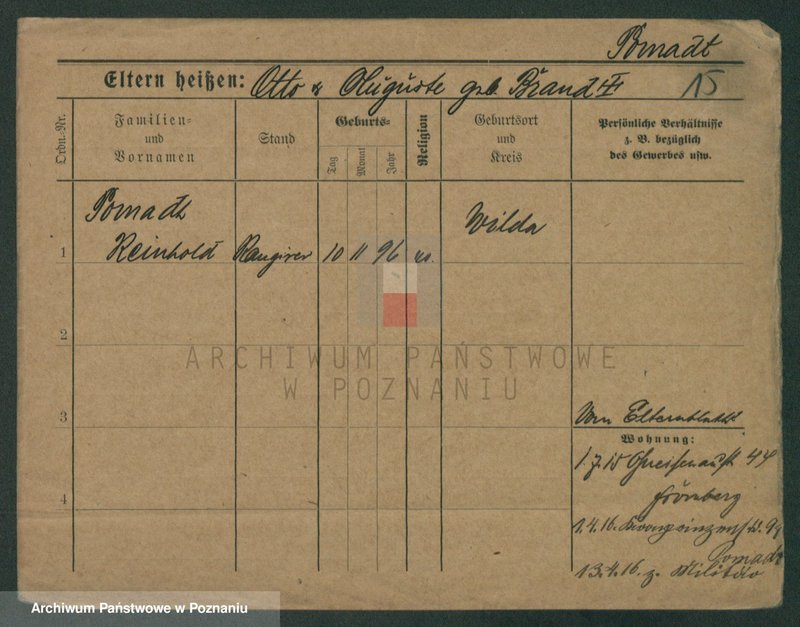 Pomadt
Eltern heißen: Otto & Auguste geb. Brandt 15
Ordn.-Nr.
Familien- und Vornamen
Stand
Geburts-
Tag
Monat
Jahr
Religion
Geburtsort und Kreis
Persönliche Verhältnisse z. B. bezüglich des Gewerbes usw.
Pomadt
1 Reinhold Rangirer 10 11 96 ev. Wilda
2
ARCHIWUM PAŃSTWOWE
W POZNANIU
3
Vom Elternblatt
Wohnung:
1.7.15 Gneisenaustr 44
4
Frömberg
1.4.16. Kronprinzenstr. 94
Pomadt
13.4.16. z. Militär
Archiwum Państwowe w Poznaniu